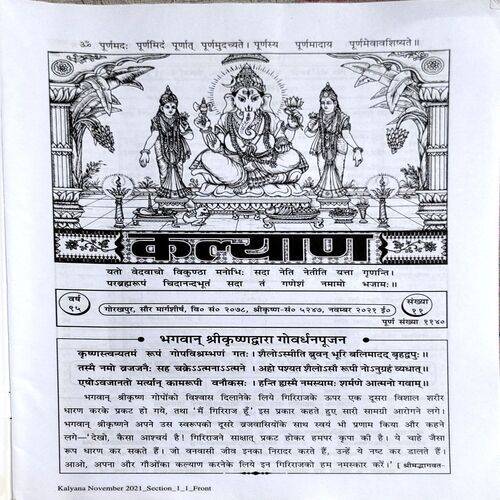 ॐ पूर्णमदः पूर्णमिदं पूर्णात् पूर्णमुदच्यते। पूर्णस्य पूर्णमादाय पूर्णमेवावशिष्यते॥
कल्याण
यतो वेदवाचो विकुण्ठा मनोभिः सदा नेति नेतीति यत्ता गृणन्ति।
परब्रह्मरूपं चिदानन्दभूतं सदा तं गणेशं नमामो भजामः॥
वर्ष
९५
गोरखपुर, सौर मार्गशीर्ष, वि० सं० २०७८, श्रीकृष्ण-सं० ५२४७, नवम्बर २०२१ ई०
संख्या
११
पूर्ण संख्या ११४०
भगवान् श्रीकृष्णद्वारा गोवर्धनपूजन
कृष्णस्त्वन्यतमं रूपं गोपविश्रम्भणं गतः। शैलोऽस्मीति ब्रुवन् भूरि बलिमादद् बृहद्वपुः॥
तस्मै नमो व्रजजनैः सह चक्रेऽत्मनाऽऽत्मने। अहो पश्यत शैलोऽसौ रूपी नोऽनुग्रहं व्यधात्॥
एषोऽवजानतो मर्त्यान् कामरूपी वनौकसः। हन्ति ह्यस्मै नमस्यामः शर्मणे आत्मनो गवाम्॥
भगवान् श्रीकृष्ण गोपोंको विश्वास दिलानेके लिये गिरिराजके ऊपर एक दूसरा विशाल शरीर
धारण करके प्रकट हो गये, तथा 'मैं गिरिराज हूँ' इस प्रकार कहते हुए सारी सामग्री आरोगने लगे।
भगवान् श्रीकृष्णने अपने उस स्वरूपको दूसरे व्रजवासियोंके साथ स्वयं भी प्रणाम किया और कहने
लगे—'देखो, कैसा आश्चर्य है! गिरिराजने साक्षात् प्रकट होकर हमपर कृपा की है। ये चाहे जैसा
रूप धारण कर सकते हैं। जो वनवासी जीव इनका निरादर करते हैं, उन्हें ये नष्ट कर डालते हैं।
आओ, अपना और गौओंका कल्याण करनेके लिये इन गिरिराजको हम नमस्कार करें।' [ श्रीमद्भागवत-
Kalyana November 2021_Section_1_1_Front